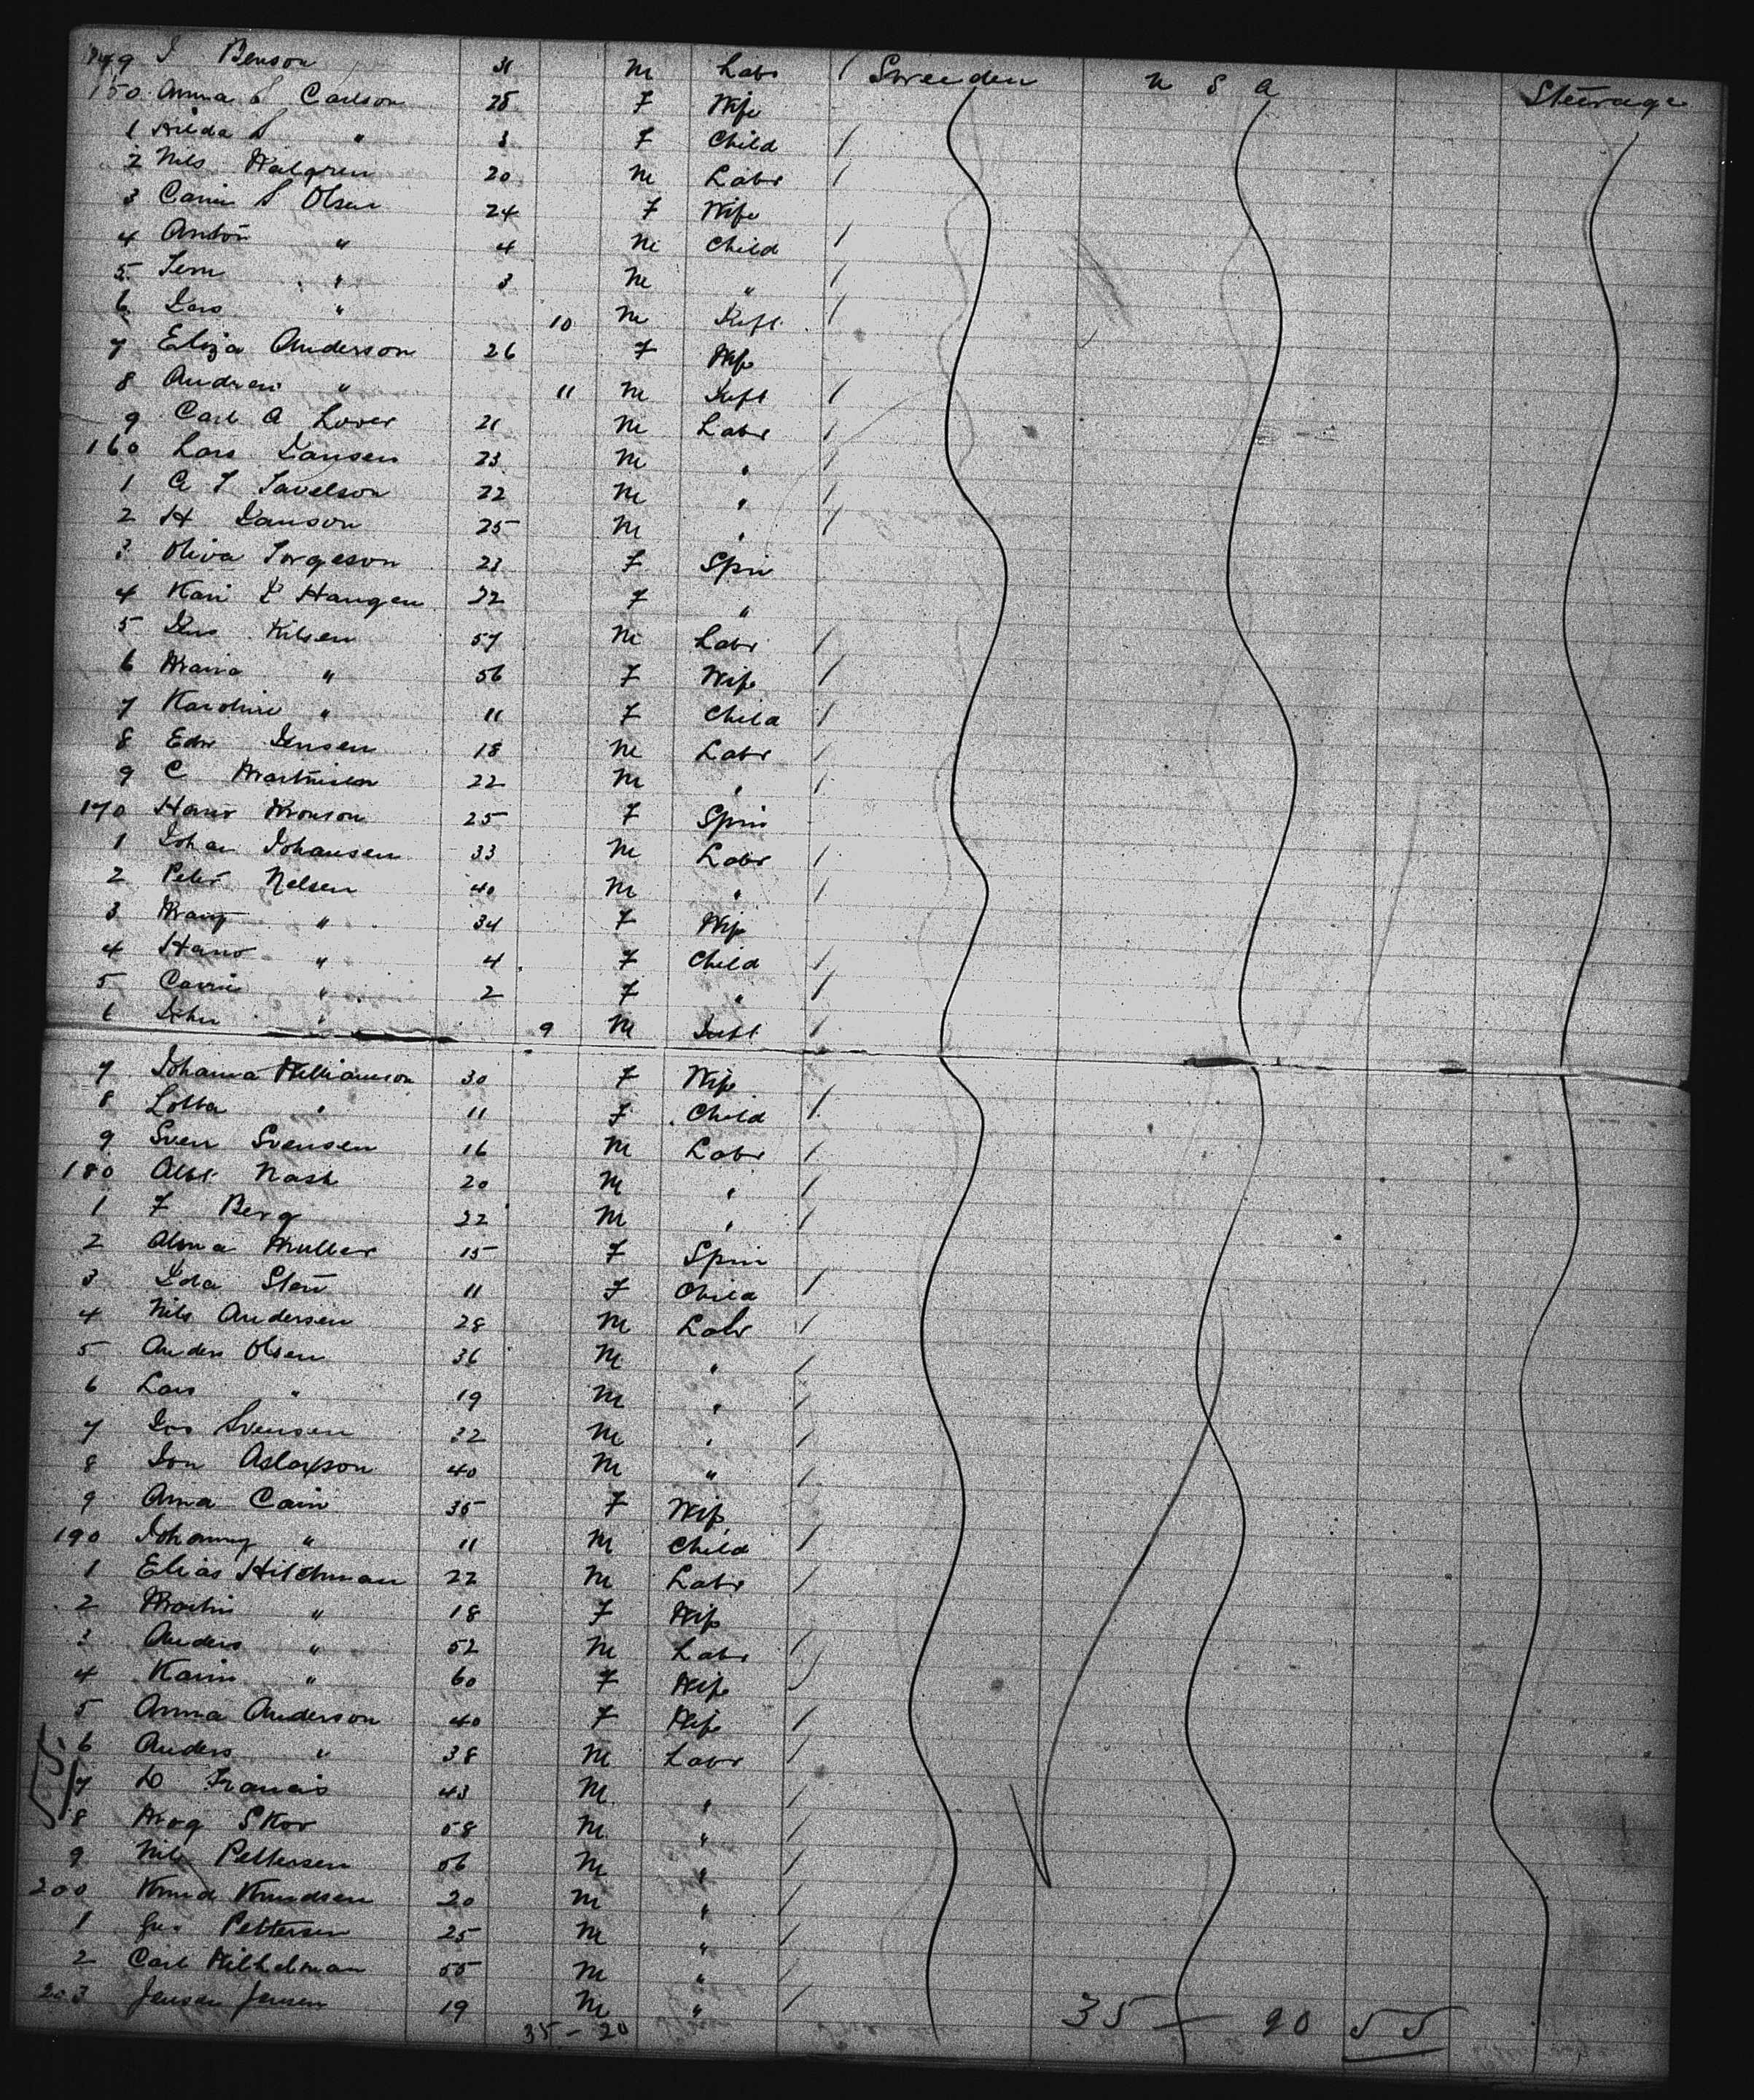 149 I Benson 31 M Labr / Sweeden U S A Steerage
150 Anna S Carlson 28 F Wife
1 Hilda S " 3 F Child /
2 Nils Walgren 20 M Labr /
3 Carin S Olsen 24 F Wife
4 Anton " 4 M Child /
5 " 3 M " /
6 " 10 M Inft /
7 Eliza Anderson 26 F Wife
8 Andrew " 11 M Inft /
9 Carl A 21 M Labr /
160 Lars Jansen 23 M " /
1 A T 22 M " /
2 H Janson 25 M " /
3 Oliva Torgeson 23 F Spin
4 Kari Haugen 22 F "
5 Jens Nilsen 57 M Labr /
6 Maria " 56 F Wife /
7 Karoline " 11 F Child /
8 Edw Jensen 18 M Labr /
9 C Martinsen 22 M " /
170 Hans Monson 25 F Spin
1 Johan Johansen 33 M Labr /
2 Peter Nelsen 40 M " /
3 Mary " 34 F Wife
4 Hans " 4 F Child /
5 Carrie " 2 F " /
6 John " 9 M Inft /
7 Johanna Williamson 30 F Wife
8 Lotta " 11 F Child /
9 Sven Svensen 16 M Labr /
180 Albt Nash 20 M " /
1 F Berg 22 M " /
2 Alma Muller 15 F Spin
3 Ida Sten 11 F Child /
4 Nils Andersen 28 M Labr /
5 Anders Olsen 36 M " /
6 Lars " 19 M " /
7 Jos Svensen 32 M " /
8 Jon Aslaxson 40 M " /
9 Anna Cain 35 F Wife
190 Johanny " 11 M Child /
1 Elias Hitchman 22 M Labr /
2 Martin " 18 F Wife
3 Anders " 52 M Labr /
4 Karin " 60 F Wife
5 Anna Anderson 40 F Wife /
6 Anders " 38 M Labr /
7 D Francis 43 M " /
8 Mog Skov 58 M " /
9 Nils Pettersen 56 M " /
200 Knud Knudsen 20 M " /
1 Gus Pettersen 25 M " /
2 Carl Wilhelman 55 M " /
203 Jensen Jensen 19 M " /
35 - 20 35 - 20 55